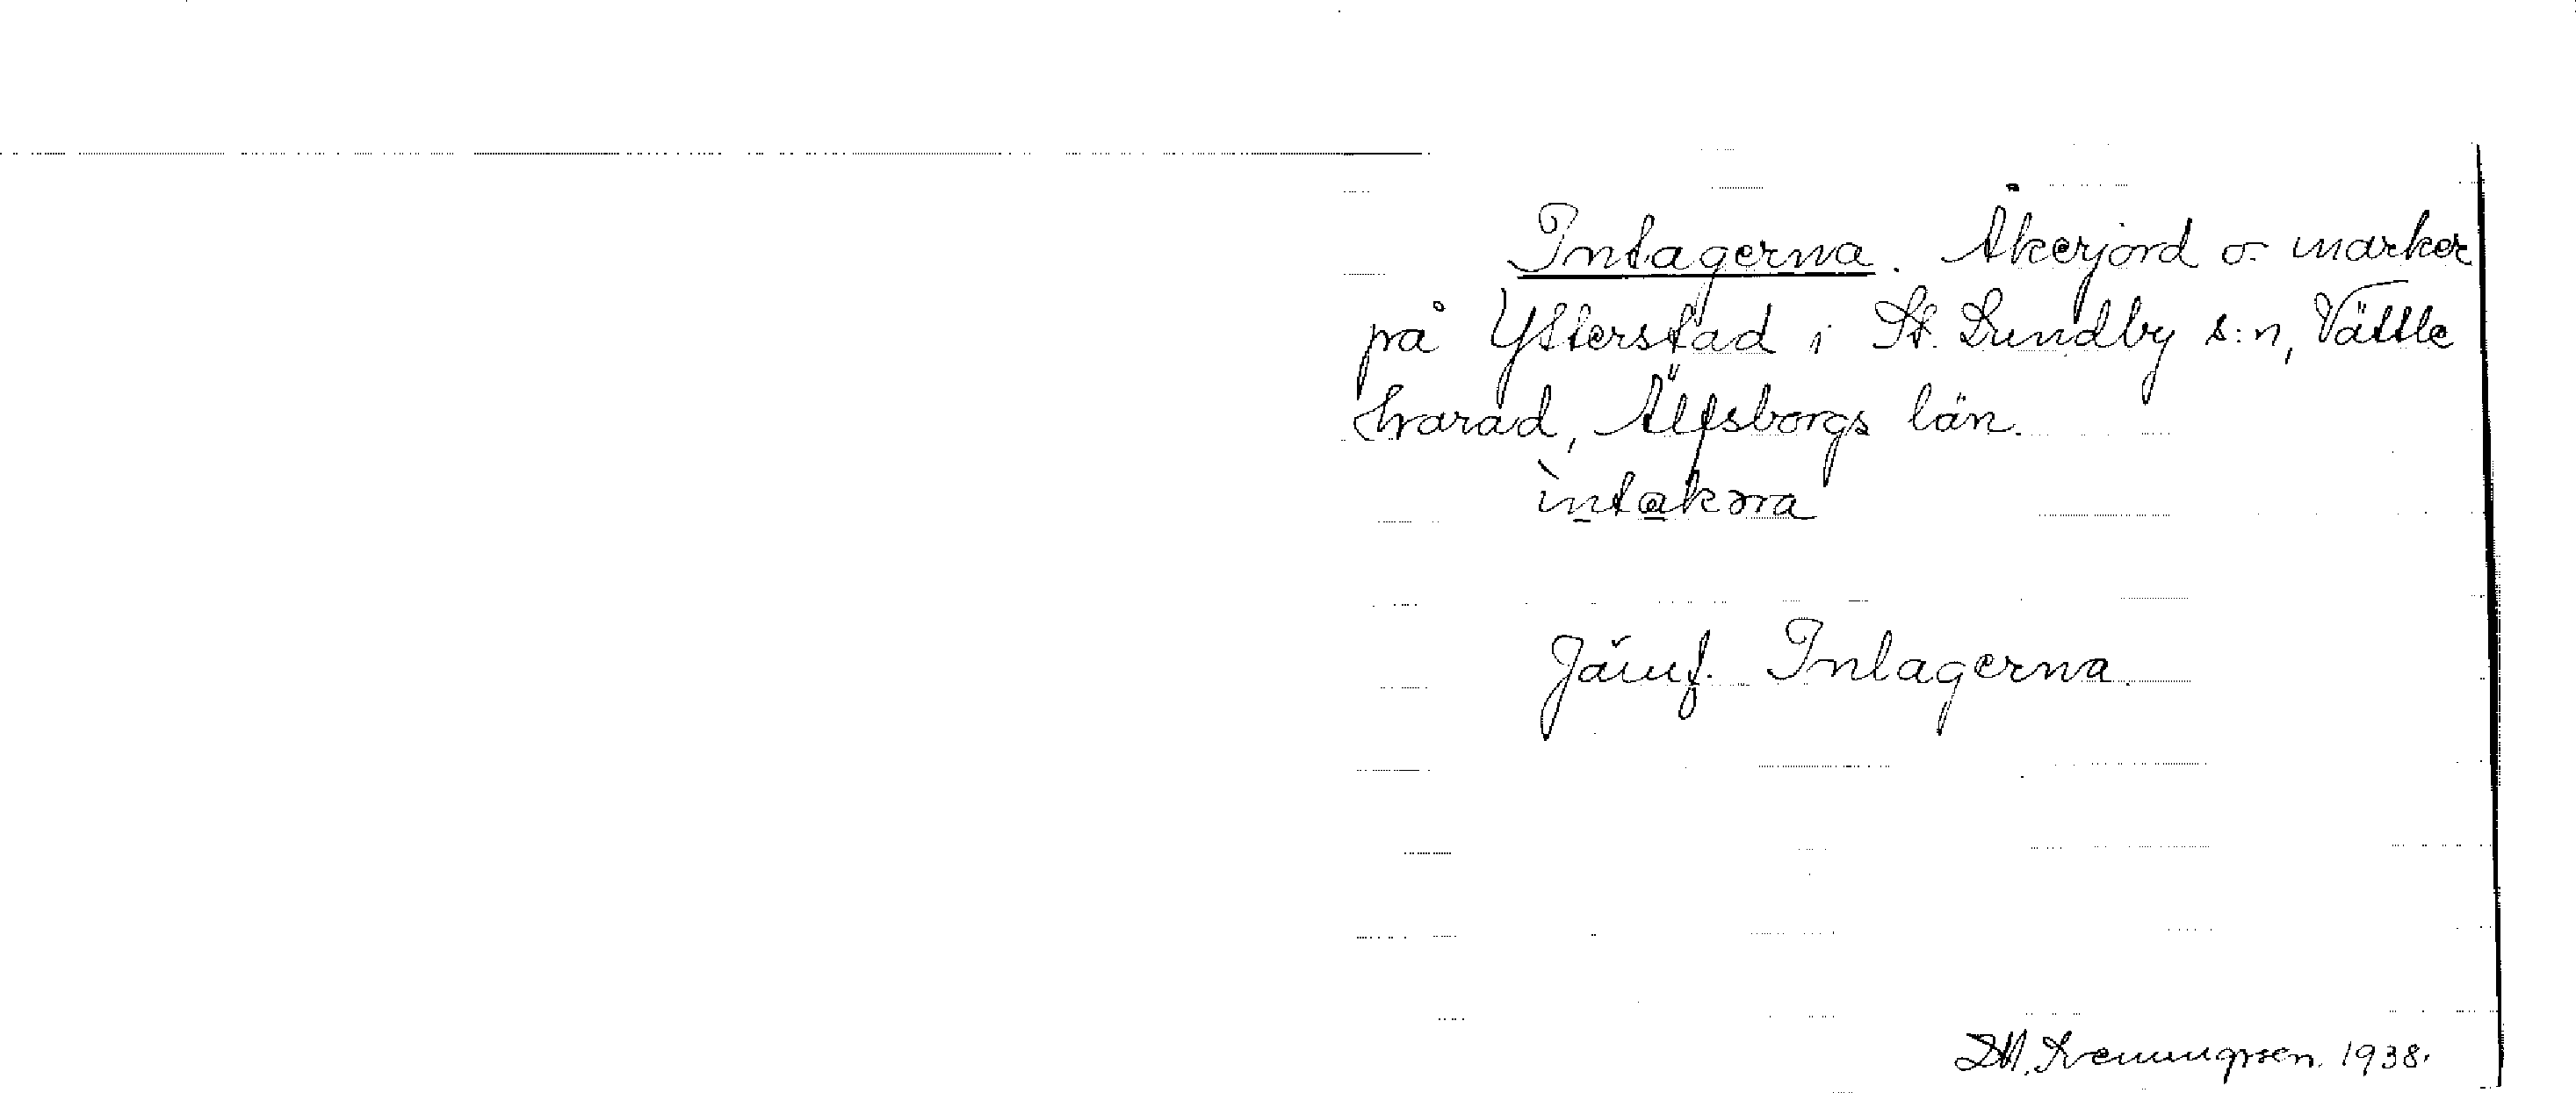 Intagerna. Åkerjord o. marker
på Ytterstad i St. Lundby s:n, Vättle
härad, Älfsborgs län.
ìntakəra
Jämf. Inlagerna.
1938.